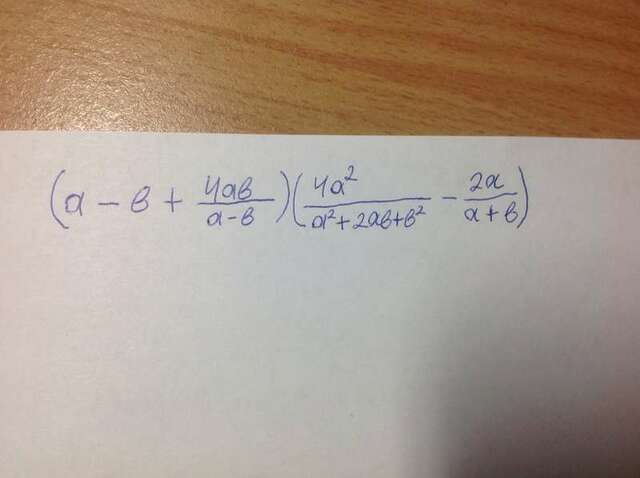 (a - b + \frac{4ab}{a-b})(\frac{4a^2}{a^2+2ab+b^2} - \frac{2a}{a+b})